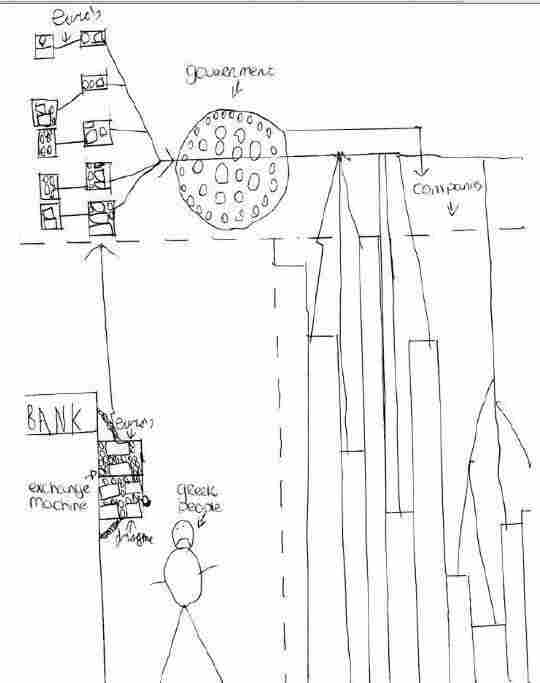 euro's
government
companies
BANK
euro's
exchange
machine
greek
people